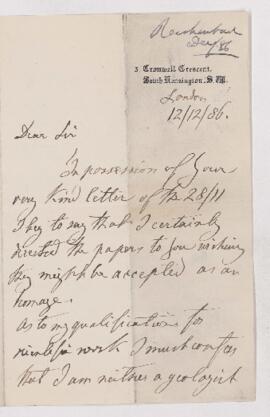 Reichenbach
Dec/86
3 Cromwell Crescent,
South Kensington. S.W.
London
12/12/86.
Dear Sir
In possession of your
very kind letter of the 28/11
I beg to say that I certainly
directed the papers to you wishing
they might be accepted as an
homage.
As to my qualifications for
work I must confess
that I am neither a geologist